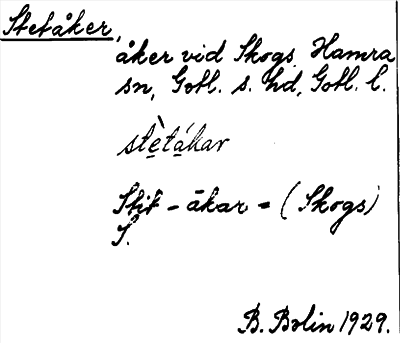 Stetåker,
åker vid Skogs, Hamra
sn, Gotl. s. hd, Gotl. l.
stè̩tá̩kar
Stit - åkar = (Skogs)
S.
B. Bolin 1929.